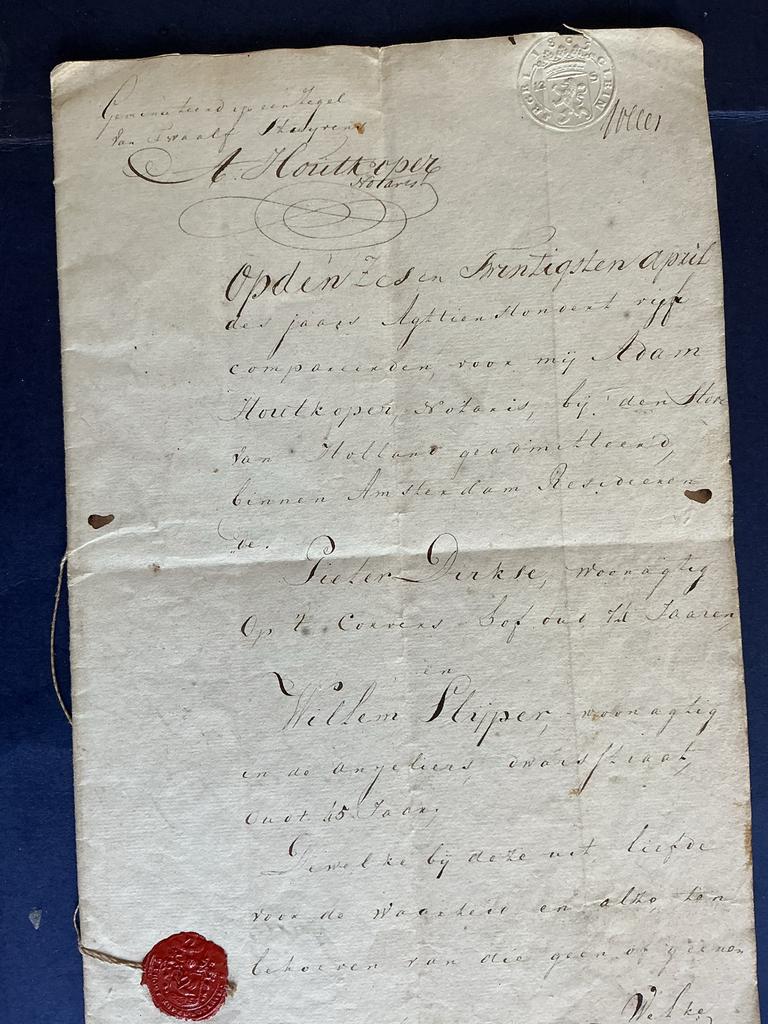 Geminuteerd op een Zegel
van Twaalf Stuyvers
A. Houtkoper
Notaris
1805
Op den Zes en Twintigsten April
des jaars Agttien Hondert vijf
compareerden, voor mij Adam
Houtkoper, Notaris, bij den Hove
van Holland geadmitteerd,
binnen Amsterdam Resideeren
de.
Pieter Dirkse, woonagtig
Op 't Corvers hof oud Jaaren,
en
Willem Slijper, woonagtig
in de angeliers, dwarsstraat,
Oudt 45 Jaar,
Dewelke bij deze uit liefde
voor de waarheid en alzo, ten
behoeven van die geen of geenen
Welke